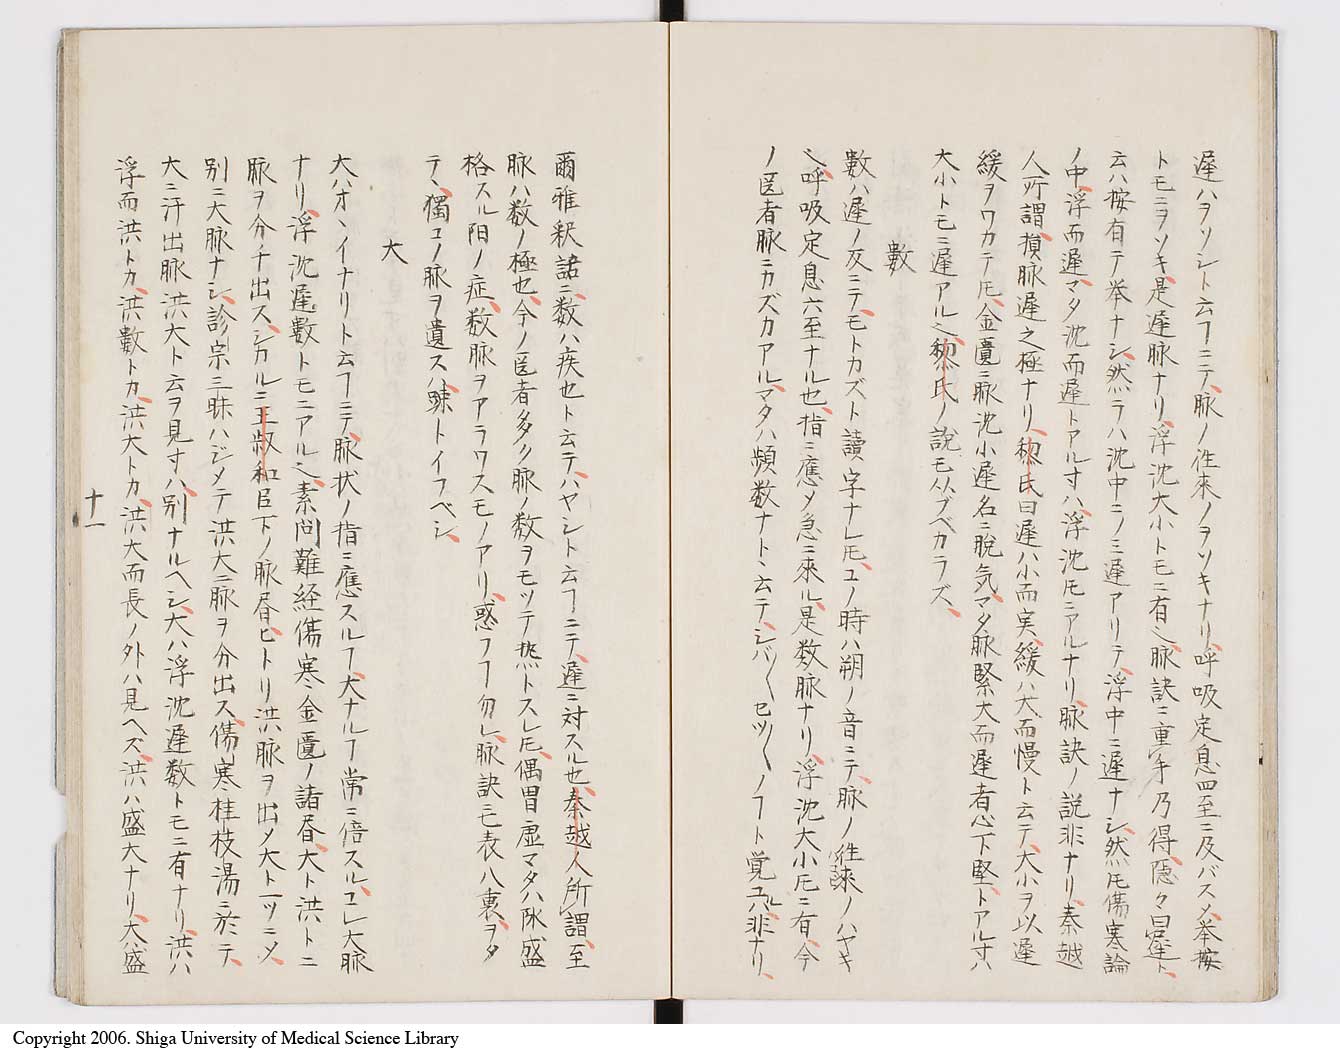 遲ハヲソシト云ヿニテ、脉ノ往來ノヲソキナリ、呼吸定息四至ニ及バスメ、挙按
トモニヲソキ、是遲脉ナリ、浮沈大小トモニ有之、脉訣ニ重手乃得、隱々曰遲ト、
云ハ按有テ挙ナシ、然ラハ沈中ニノミ遲アリテ、浮中ニ遲ナシ、然ㇳモ傷寒論
ノ中、浮而遲、マタ沈而遲トアル寸ハ、浮沈ㇳモニアルナリ、脉訣ノ説非ナリ、秦越
人所謂、損脉遲之極ナリ、黎氏曰遲ハ小而実、緩ハ大而慢ト云テ、大小ヲ以遲
緩ヲワカテㇳモ、金匱ニ脉沈小遲名ニ脱気、マタ脉緊大而遲者心下堅、トアル寸ハ
大小トモニ遲アル之、黎氏ノ説モ从ブベカラズ、
數
數ハ遲ノ反ニテ、モトカズト讀字ナレㇳモ、コノ時ハ朔ノ音ニテ、脉ノ往來ノハヤキ
之、呼吸定息六至ナル也、指ニ應メ急ニ來ル、是数脉ナリ、浮沈大小ㇳモニ有、今
ノ医者脉ニカズカアル、マタハ頻数ナト、云テ、シバ〱セツ〱ノヿト覚ユルハ非ナリ、
爾雅釈詁ニ、数ハ疾也ト云テ、ハヤシト云ヿニテ、遲ニ対スル也、秦越人所謂、至
脉ハ数ノ極也、今ノ医者多ク脉ノ数ヲモツテ热トスレㇳモ、偶冒虚マタハ陰盛
格スル陽ノ症、数脉ヲアラワスモノアリ、惑フヿ勿レ、脉訣ニモ表八裏、ヲタ
テ、獨コノ脉ヲ遺スハ、踈トイフベシ、
大
大ハオヽイナリト云ヿニテ、脉状ノ指ニ應スルヿ、大ナルヿ常ニ倍スル、コレ大脉
ナリ、浮沈遲數トモニアル之、素问難経傷寒金匱ノ諸昏、大ト洪トニ
脉ヲ分チ出ス、シカルニ王叔和巨下ノ脉昏、ヒトリ洪脉ヲ出メ大ト一ツニメ、
别ニ大脉ナシ、診宗三昧ハジメテ洪大二脉ヲ分出ス、傷寒桂枝湯ニ於テ、
大ニ汗出脉洪大ト云ヲ見寸ハ、别ナルヘシ、大ハ浮沈遲数トモニ有ナリ、洪ハ
浮而洪トカ、洪數トカ、洪大トカ、洪大而長ノ外ハ見ヘズ、洪ハ盛大ナリ、大ハ盛
十一
Copyright 2006. Shiga University of Medical Science Library